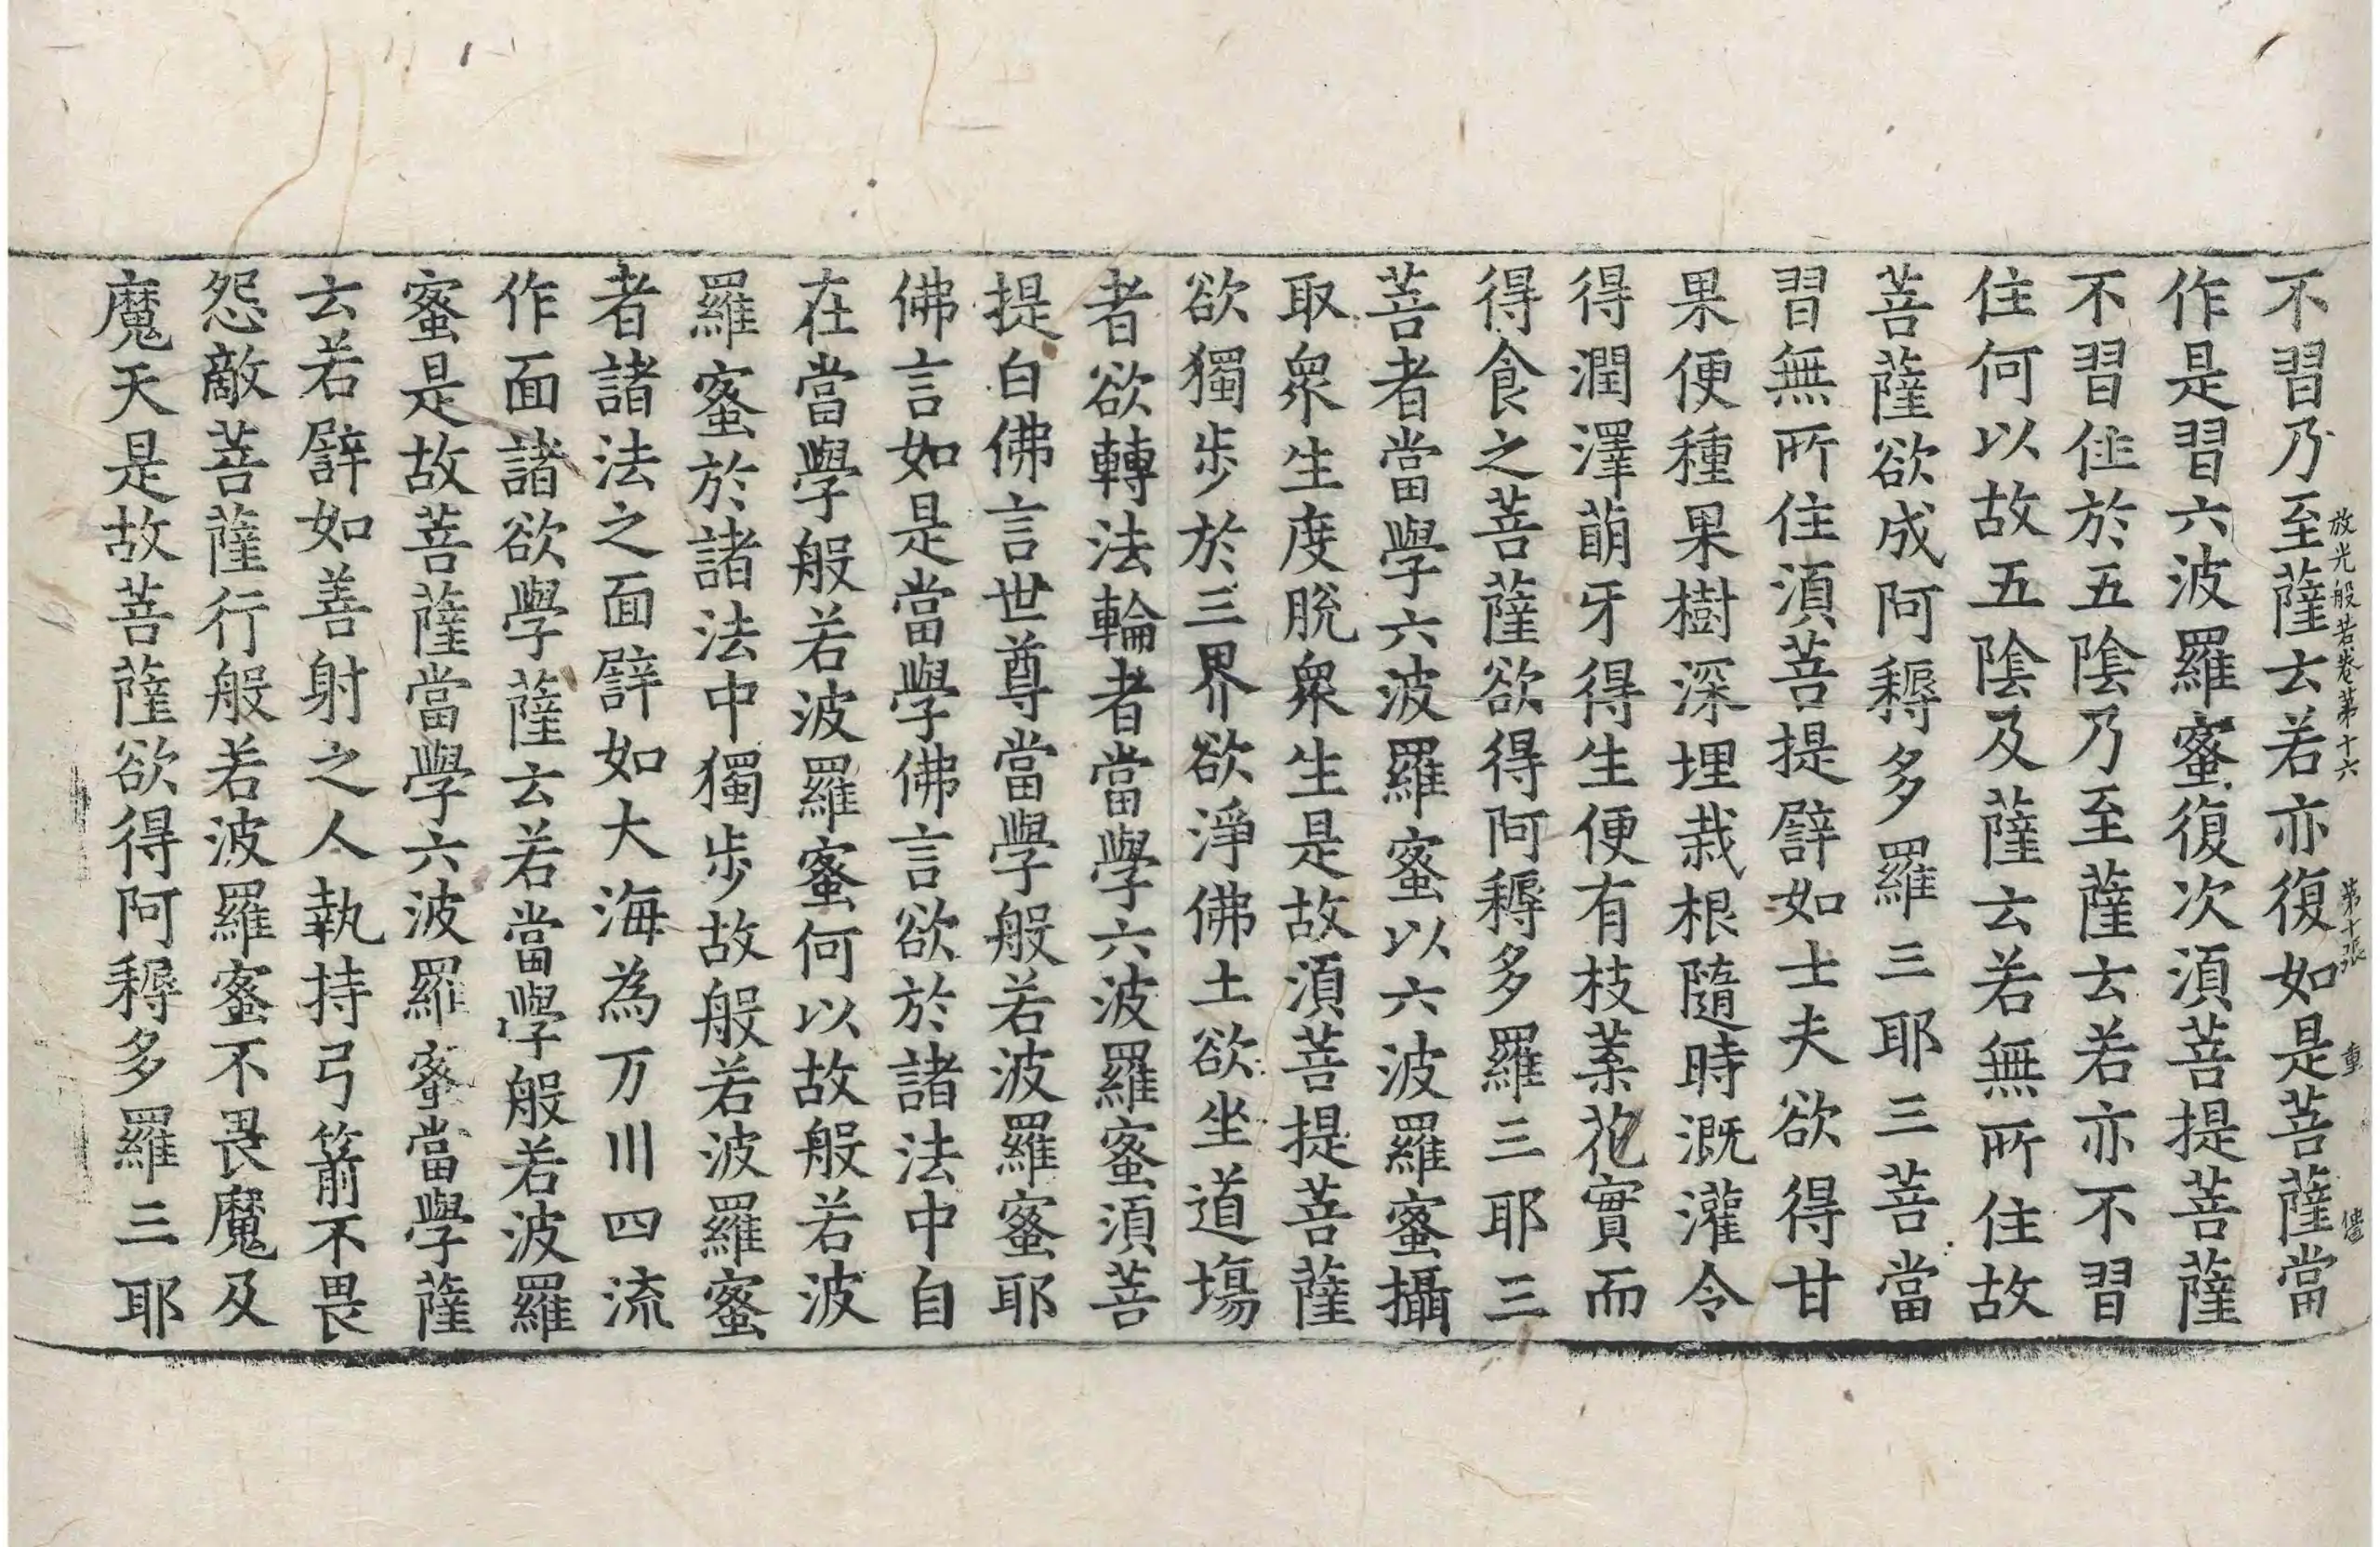 放光般若卷第十六 第十張 重
不習乃至薩云若亦復如是菩薩當
作是習六波羅蜜復次湏菩提菩薩
不習住於五陰乃至薩云若亦不習
住何以故五陰及薩云若無所住故
菩薩欲成阿耨多羅三耶三菩當
習無所住湏菩提譬如士夫欲得甘
果便種果樹深埋栽根隨時溉灌令
得潤澤萠牙得生便有枝葉花實而
得食之菩薩欲得阿耨多羅三耶三
菩者當學六波羅蜜以六波羅蜜攝
取衆生度脫衆生是故湏菩提菩薩
欲獨步於三界欲淨佛土欲坐道塲
者欲轉法輪者當學六波羅蜜湏菩
提白佛言世尊當學般若波羅蜜耶
佛言如是當學佛言欲於諸法中自
在當學般若波羅蜜何以故般若波
羅蜜於諸法中獨步故般若波羅蜜
者諸法之面譬如大海為万川四流
作面諸欲學薩云若當學般若波羅
蜜是故菩薩當學六波羅蜜當學薩
云若譬如善射之人執持弓箭不畏
怨敵菩薩行般若波羅蜜不畏魔及
魔天是故菩薩欲得阿耨多羅三耶